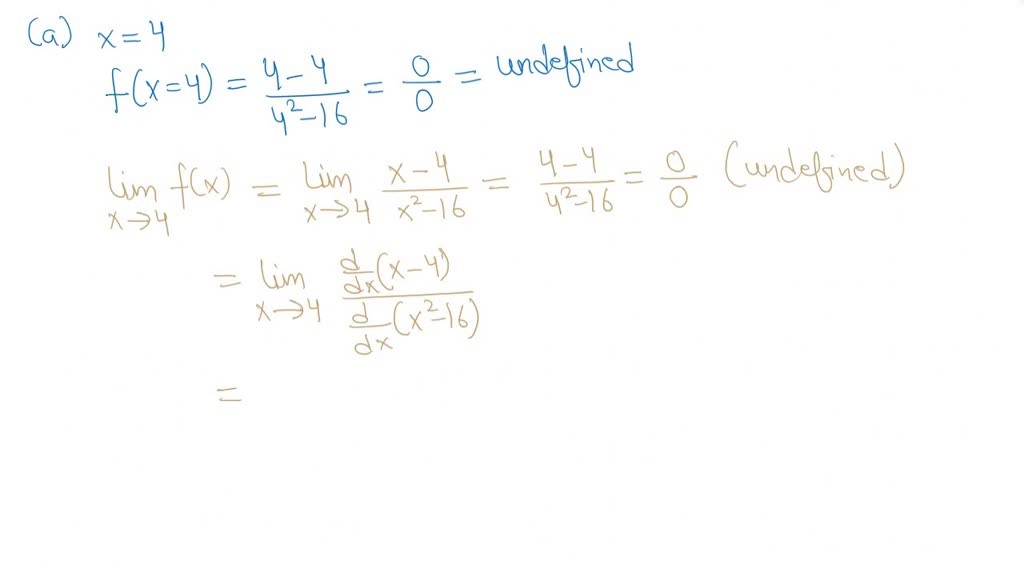 (a) x = 4
f(x=4) = (4-4)/(4²-16) = 0/0 = undefined
lim x→4 f(x) = lim x→4 (x-4)/(x²-16) = (4-4)/(4²-16) = 0/0 (undefined)
= lim x→4 (d/dx (x-4))/(d/dx (x²-16))
=